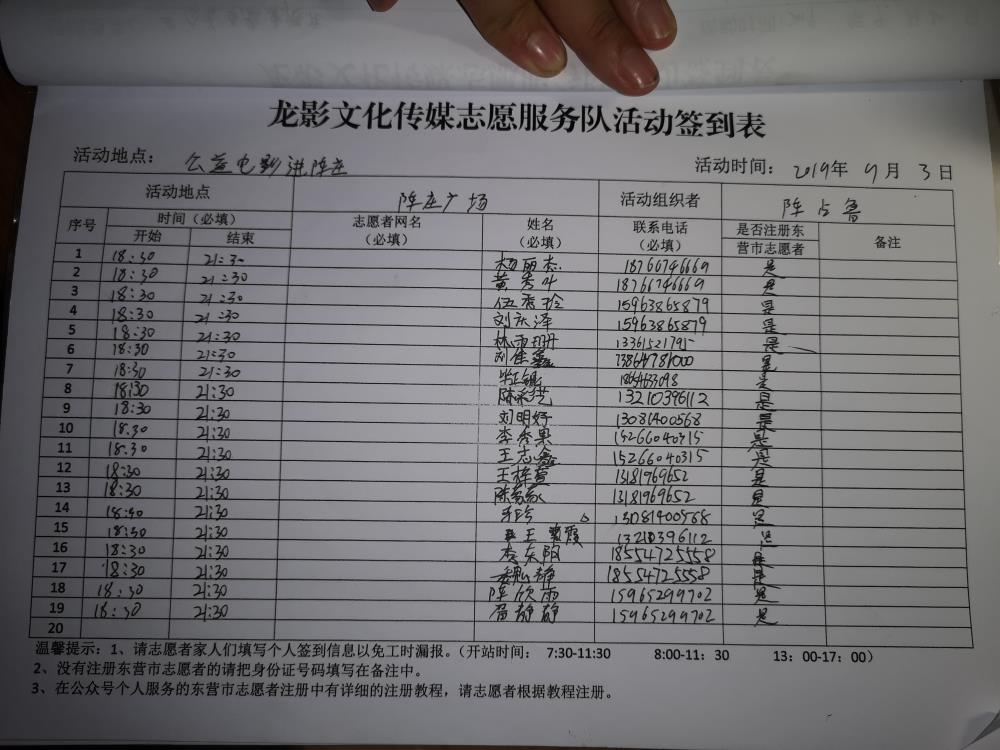 龙影文化传媒志愿服务队活动签到表
活动地点： 公益电影进陈庄 活动时间： 2019年 9月 3日
活动地点 陈庄广场 活动组织者 陈占鲁
序号 时间（必填） 志愿者网名（必填） 姓名（必填） 联系电话（必填） 是否注册东营市志愿者 备注
开始 结束
1 18:30 21:30 杨丽杰 18766746669 是
2 18:30 21:30 黄秀斗 18766746669 是
3 18:30 21:30 伍秀玲 15963865879 是
4 18:30 21:30 刘庆泽 15963865879 是
5 18:30 21:30 林雨珊 13361521795 是
6 18:30 21:30 刘佳鑫 13864781000 是
7 18:30 21:30 是
8 18:30 21:30 陈彩艺 13210396112 是
9 18:30 21:30 刘明好 13081400568 是
10 18:30 21:30 李秀果 15266040315 是
11 18:30 21:30 王志鑫 15266040315 是
12 18:30 21:30 王梓萱 13181969652 是
13 18:30 21:30 陈家家 13181969652 是
14 18:30 21:30 13081400568 是
15 18:30 21:30 王翠霞 13210396112 是
16 18:30 21:30 李东阳 18554725558 是
17 18:30 21:30 18554725558 是
18 18:30 21:30 陈欣雨 15965299702 是
19 18:30 21:30 静静 15965299702 是
20
温馨提示：1、请志愿者家人们填写个人签到信息以免工时漏报。（开站时间： 7:30-11:30 8:00-11：30 13：00-17：00）
2、没有注册东营市志愿者的请把身份证号码填写在备注中。
3、在公众号个人服务的东营市志愿者注册中有详细的注册教程，请志愿者根据教程注册。